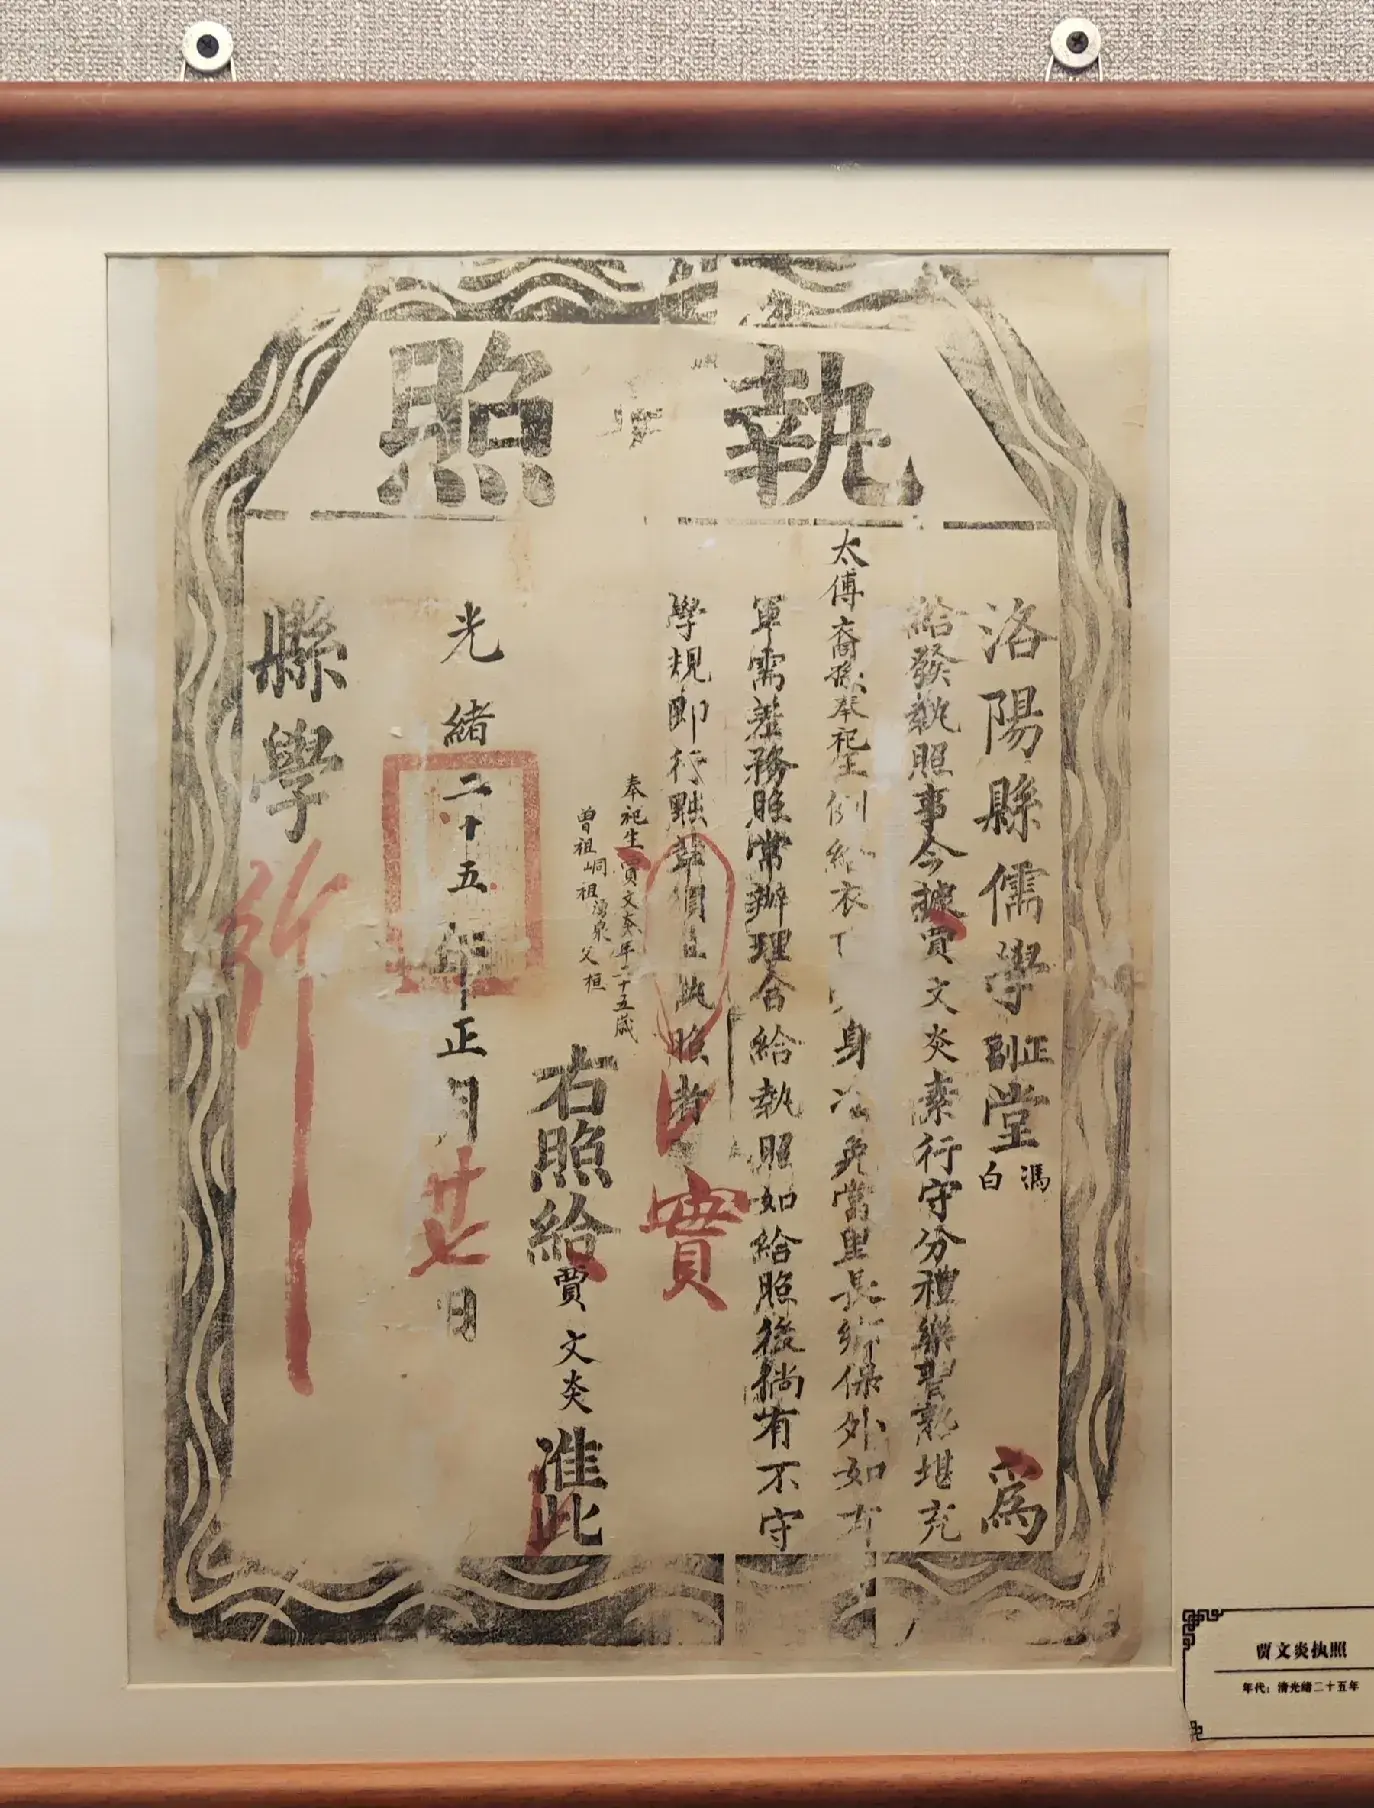 執照
洛陽縣儒學正副堂馮白為
給發執照事今據賈文炎素行守分禮樂習熟堪充
太傅裔孫奉祀生例給衣身免當里長鄉保外如有
軍需差務照常辦理合給執照如給照後倘有不守
學規即行黜革須至執照者
實
奉祀生賈文炎年二十五歲
曾祖峒祖湧泉父桓
右照給賈文炎准此
光緒二十五年正月廿七日
縣學
行
贾文炎执照
年代：清光绪二十五年